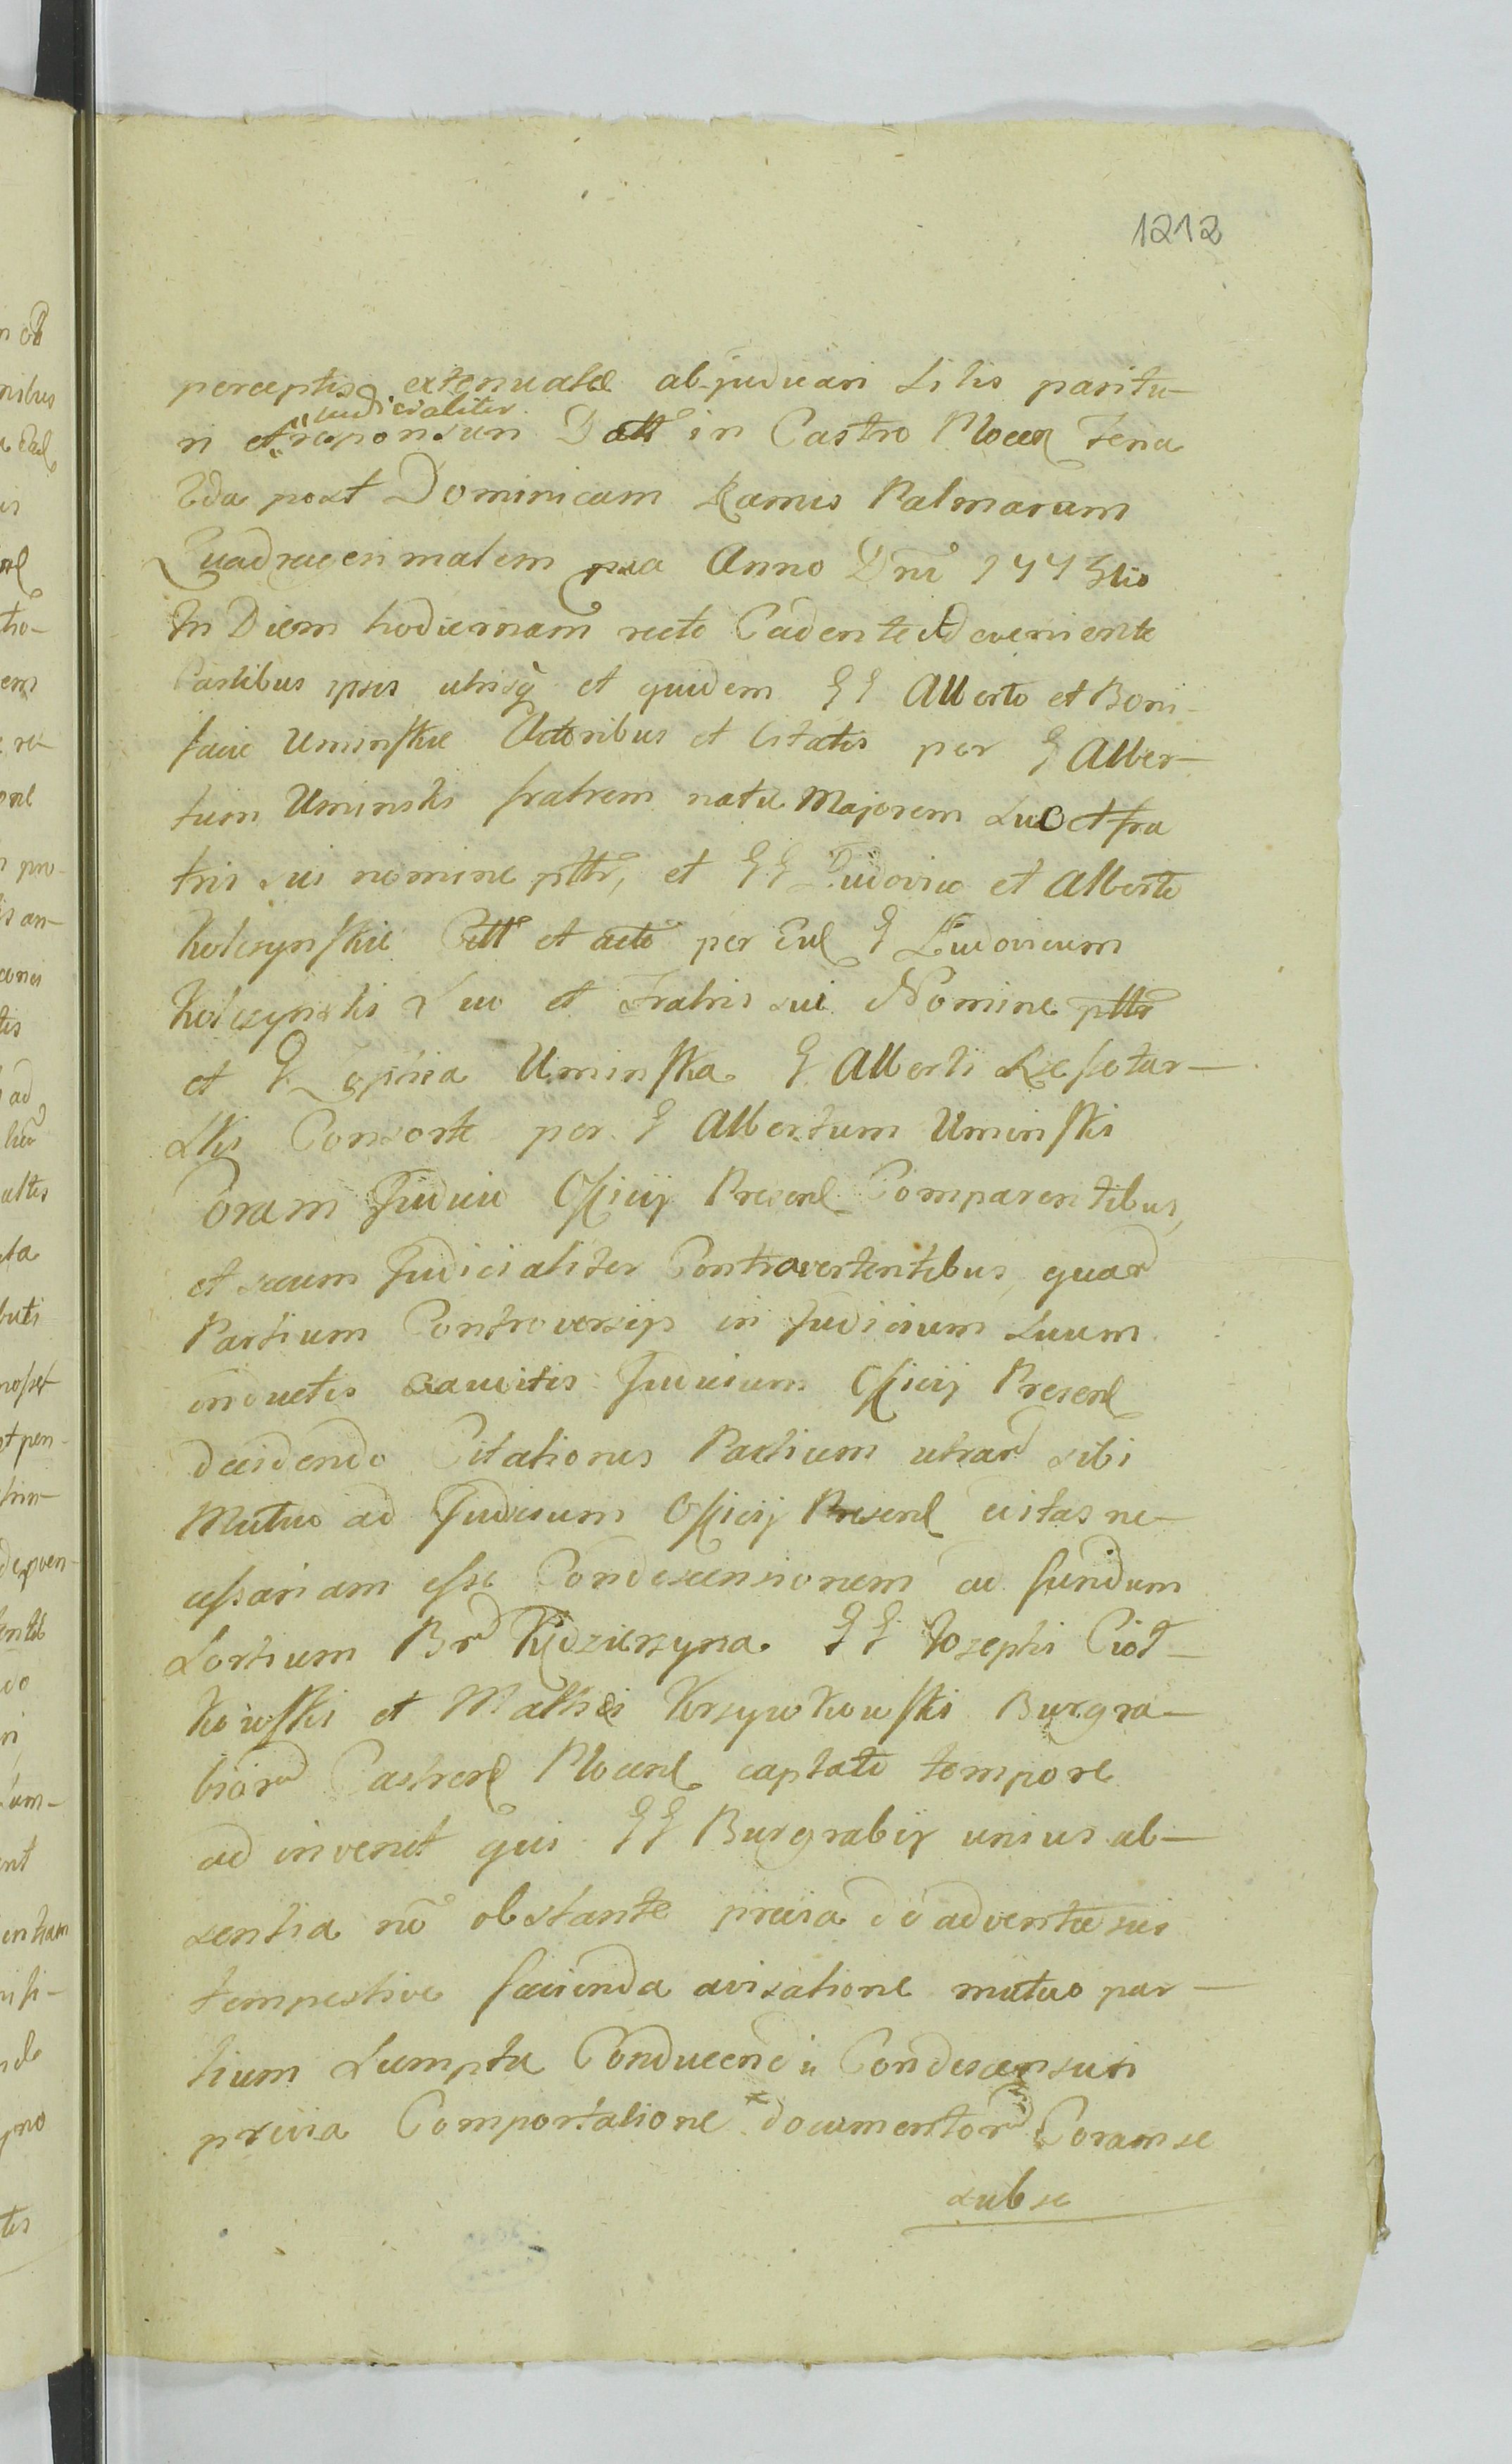 1212
perceptis extenuatæ abjudicari Litis paritu-
judicialiter
ri et responsuri Datt in Castro Plocen feria
2da post Dominicam Ramis Palmarum
Quadragesimalem pxa Anno Dni 1773tio
In Diem hodiernam recte Cadente et deveniente
Partibus ipsis utrisq et quidem GG Alberto et Boni-
facie Uminskie Actoribus et Citatis per G Alber-
tum Uminski fratrem natu Majorem Suo et fra
tris sui nomine ptte, et GG Ludovico et Alberto
Kolczynskie Citt et acto per Eul G Ludovicum
Kolczynski Suo et Fratris sui Nomine ptte
et G Zophia Uminska G Alberti Rzeszotar-
ski Consorte per G Albertum Uminski
Coram Judicio Officij Presenl Comparentibus,
et secum Judicialiter Controvertentibus, quar
Partium Controversijs in Judicium Suum
inductis exauditis Judicium Officij Presenl
decidendo Citationes Partium utrar sibi
Mutuo ad Judicium Officij Presenl editas ne-
cessariam esse Condescensionem ad fundum
Sortium Br Kędzierzyna GG Josephi Ciot-
kowski et Mathei Krzywkowski Burgra-
bior Castren Plocenl captato tempore
ad invenit qui GG Burgrabij unius ab-
sentia no obstante previa de adventu sui
tempestive facienda avisatione mutuo par-
tium Sumptu Conducendi Condescensuri
previa Comportatione documentor Coram se
sub se